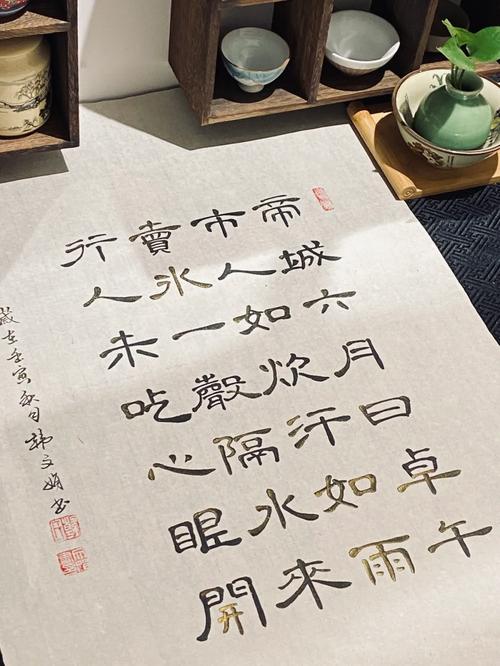 帝城六月日卓午
市人如炊汗如雨
賣冰一聲隔水來
行人未吃心眼開
歲在壬寅秋月韓文娟書